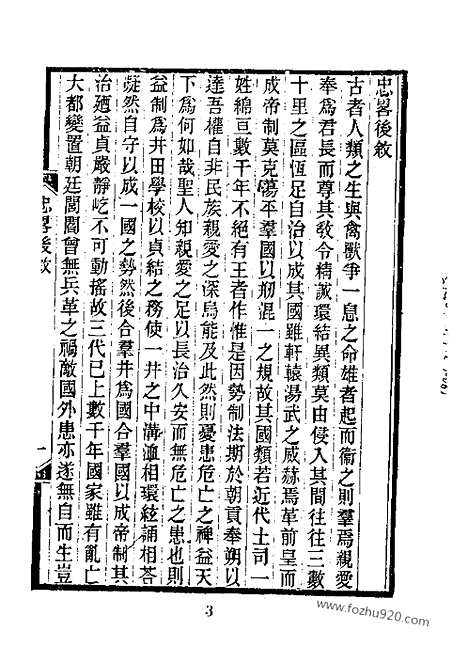 忠畧後敘
古者人類之生與禽獸爭一息之命雄者起而衞之則羣焉親愛
奉爲君長而尊其敎令精誠環結異類莫由侵入其間往往三數
十里之區恆足自治以成其國雖軒轅湯武之威赫焉革前皇而
成帝制莫克蕩平羣國以剏混一之規故其國類若近代土司一
姓綿亘數千年不絕有王者作惟是因勢制法期於朝貢奉朔以
達吾權自非民族親愛之深烏能及此然則憂患危亡之裨益天
下爲何如哉聖人知親愛之足以長治久安而無危亡之患也則
益制爲井田學校以貞結之務使一井之中溝洫相環絃誦相答
凝然自守以成一國之勢然後合羣井爲國合羣國以成帝制其
治廼益貞嚴靜屹不可動搖故三代已上數千年國家雖有亂亡
大都變置朝廷閭閻曾無兵革之禍敵國外患亦遂無自而生豈
忠畧後敘
一
3
www.fozhu920.com